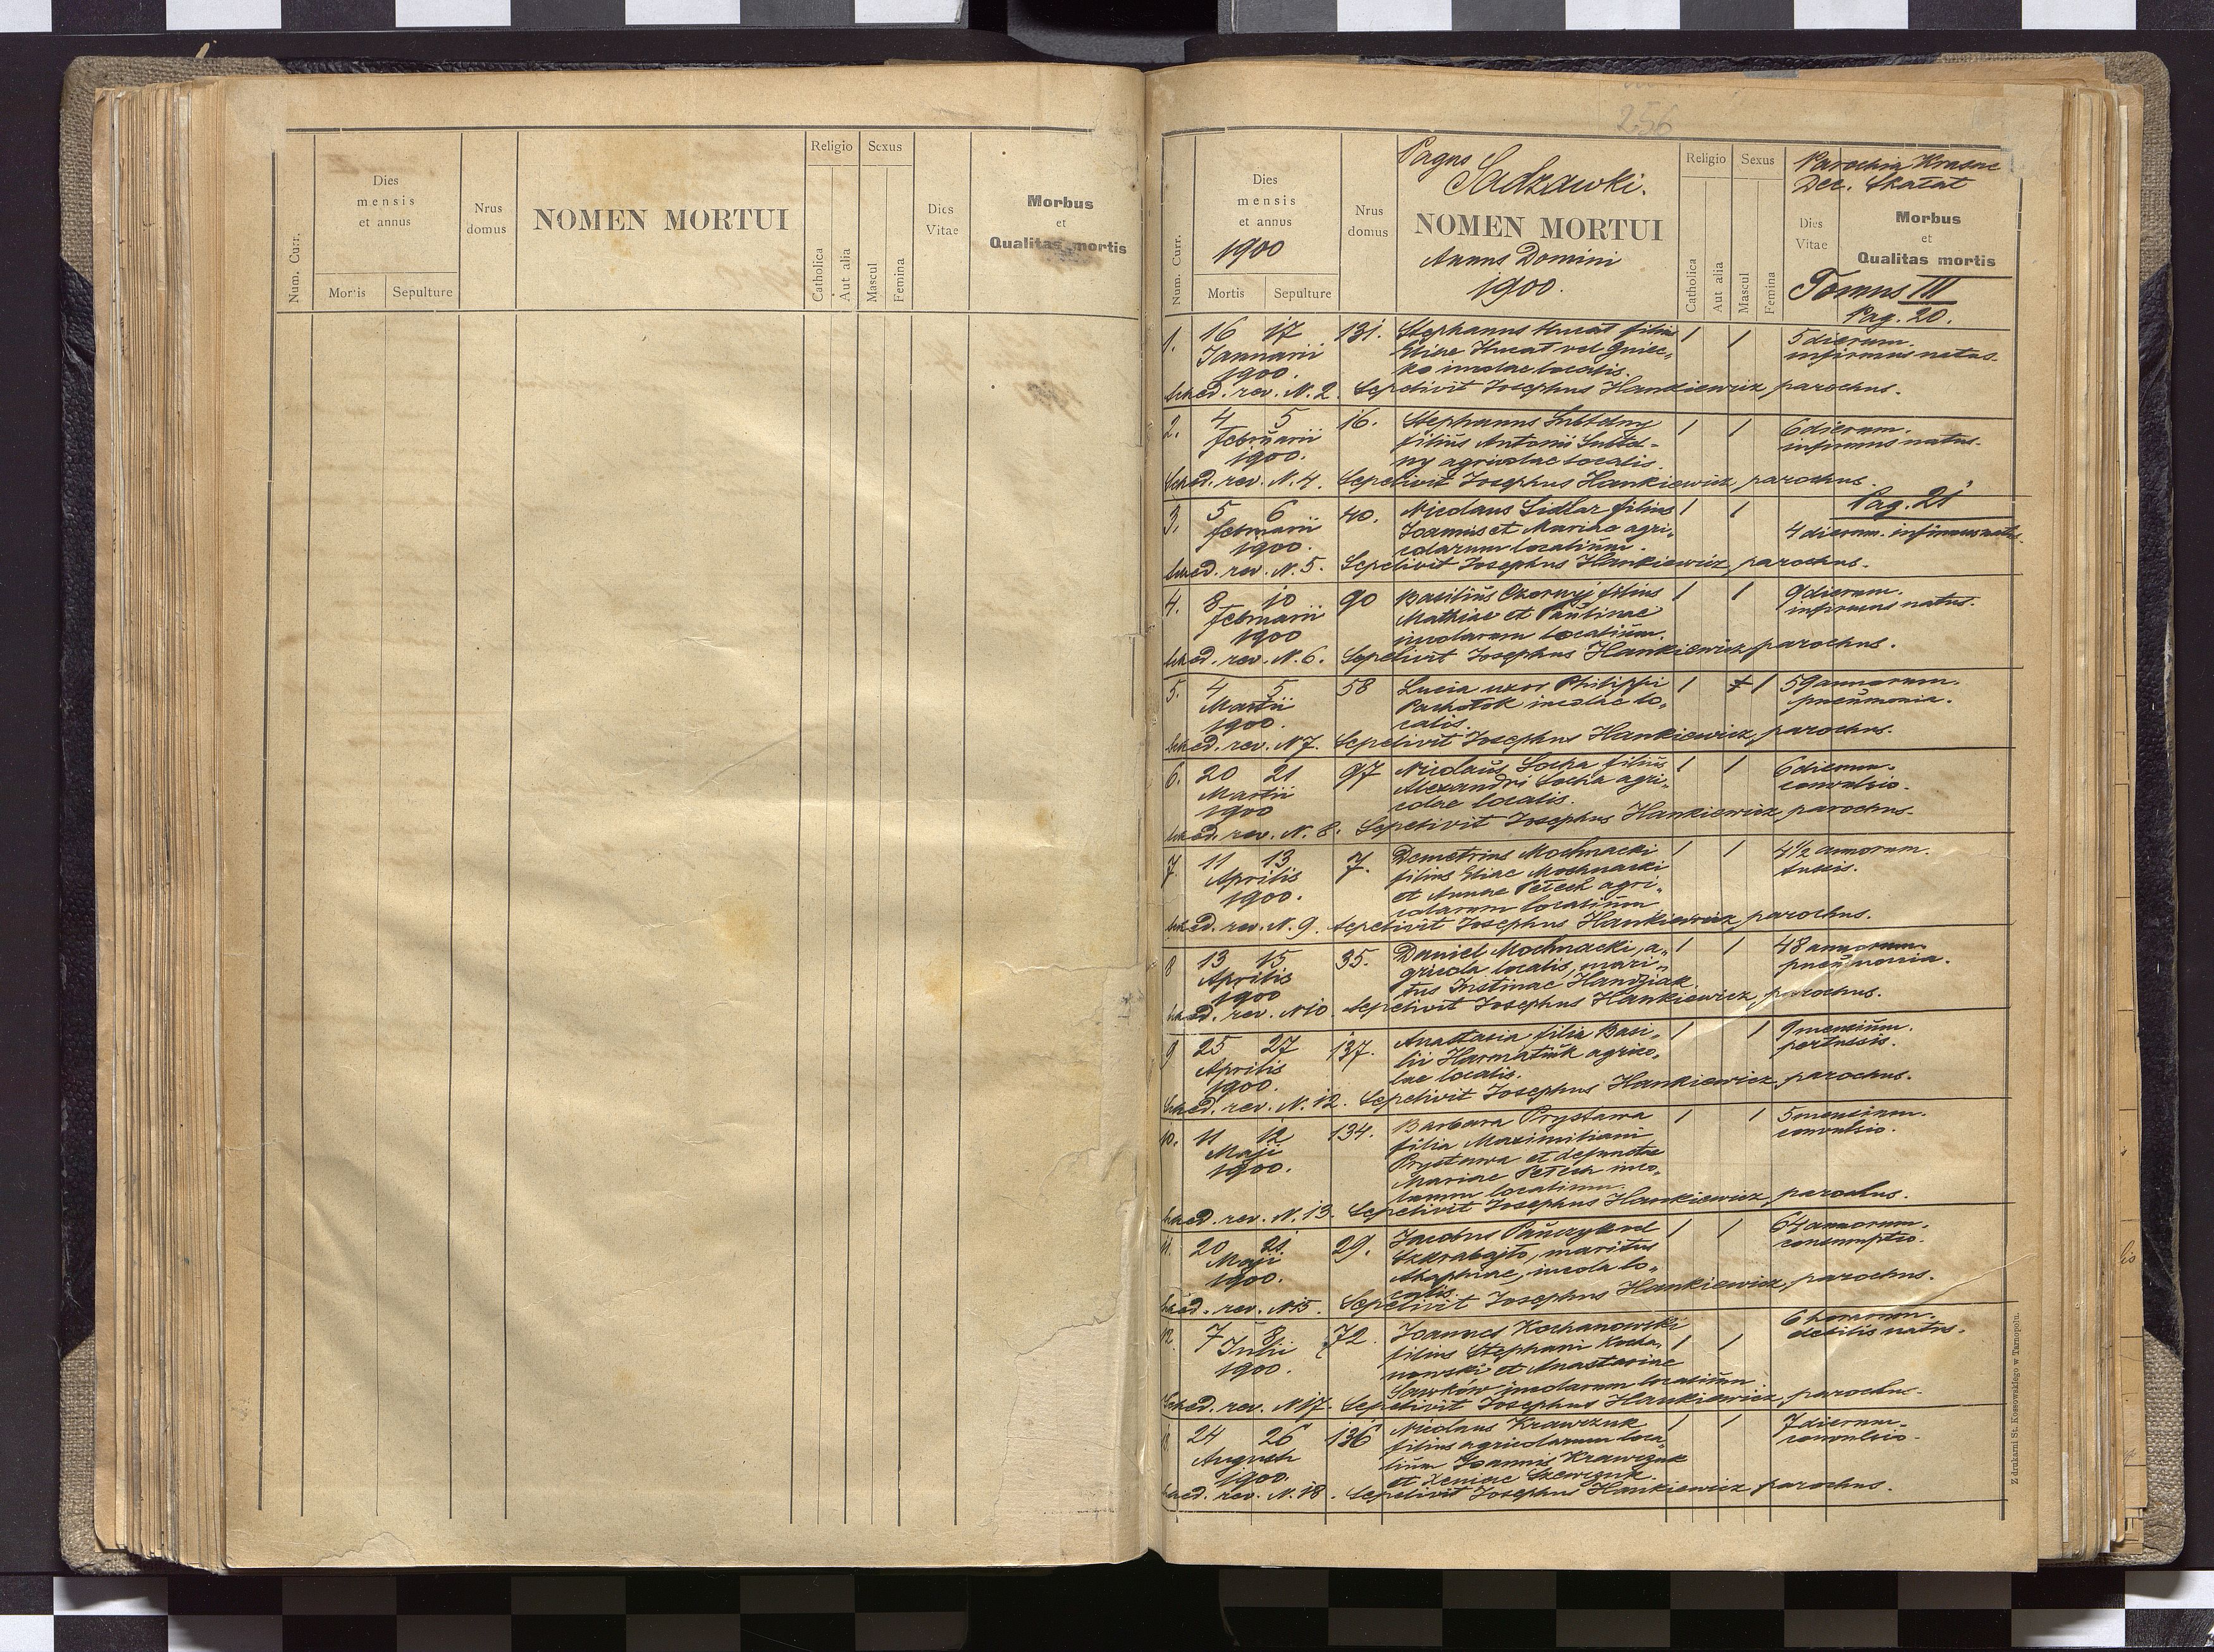 Num. Curr.
Dies
mensis
et annus
Mortis
Sepulture
Nrus
domus
NOMEN MORTUI
Religio
Sexus
Catholica
Aut alia
Mascul
Femina
Dies
Vitae
Morbus
et
Qualitas mortis
256
Num. Curr.
Dies
mensis
et annus
1900
Mortis
Sepulture
Nrus
domus
Pagus
Sadzawki.
NOMEN MORTUI
Annus Domini
1900.
Religio
Sexus
Catholica
Aut alia
Mascul
Femina
Parochia Krasne
Dec. Skałat
Dies
Vitae
Morbus
et
Qualitas mortis
Tomus III
Pag. 20.
1. 16 17 131. Stephanus Hucat filius 1 1 5 dierum.
Januarii Eliae Hucat vel Gniec„ infirmus natus.
1900. ko incolae localis.
Sched. rev. N. 2. Sepelivit Josephus Hankiewicz, parochus.
2. 4 5 16. Stephanus 1 1 6 dierum.
Februarii filius Antonii infirmus natus.
1900. ny agricolae localis.
Sched. rev. N. 4. Sepelivit Josephus Hankiewicz, parochus.
Pag. 21
3. 5 6 40. Nicolaus Sidlar filius 1 1
Februarii Joannis et Mariae agri„ 4 dierum. infirmus natus.
1900. colarum localium.
Sched. rev. N. 5. Sepelivit Josephus Hankiewicz, parochus.
4. 8 10 90 Basilius Czornyj filius 1 1 9 dierum.
Februarii Mathiae et Paulinae infirmus natus.
1900 incolarum localium.
Sched. rev. N. 6. Sepelivit Josephus Hankiewicz, parochus.
5. 4 5 58 Lucia uxor Philippi 1 1 59 annorum.
Martii Pachotok incolae lo„ pneumonia.
1900. calis.
Sched. rev. N 7. Sepelivit Josephus Hankiewicz, parochus.
6. 20 21 97 Nicolaus Socha filius 1 1 6 dierum.
Martii Alexandri Socha agri„ convulsio.
1900 colae localis.
Sched. rev. N. 8. Sepelivit Josephus Hankiewicz, parochus.
7. 11 13 7. Demetrius Mochnacki 1 1 4 1/2 annorum.
Aprilis filius Eliae Mochnacki tussis.
1900. et Annae Petech agri„
colarum localium
Sched. rev. N. 9. Sepelivit Josephus Hankiewicz, parochus.
8 13 15 35. Daniel Mochnacki, a„ 1 1 48 annorum.
Aprilis gricola localis, mari„ pneumonia.
1900 tus Justinae Handziak.
Sched. rev. N 10. Sepelivit Josephus Hankiewicz, parochus.
9 25 27 137. Anastasia filia Basi„ 1 1 9 mensium.
Aprilis lii Harmatiuk agrico„ pertussis.
1900. lae localis.
Sched. rev. N. 12. Sepelivit Josephus Hankiewicz, parochus.
10. 11 12 134. Barbara Prystawa 1 1 5 mensium.
Maji filia Maximiliani convulsio.
1900. Prystawa et defunctae
Mariae Petech inco„
larum localium.
Sched. rev. N. 13. Sepelivit Josephus Hankiewicz, parochus.
11. 20 21 29. Jacobus Pańczyk vel 1 1 64 annorum.
Maji maritus consumptio.
1900. Ahaphiae, incola lo„
calis.
Sched. rev. N 15. Sepelivit Josephus Hankiewicz, parochus.
12. 7 8 72. Joannes Kochanowski 1 1 6 horarum.
Julii filius Stephani Kocha„ debilis natus.
1900. nowski et Anastasiae
Sawków incolarum localium.
Sched. rev. N 17. Sepelivit Josephus Hankiewicz, parochus.
13. 24 26 136 Nicolaus Krawczuk 1 1 7 dierum.
Augusti filius agricolarum loca„ convulsio.
1900. lium Joannis Krawczuk
et Xeniae Szewczuk.
Sched. rev. N. 18. Sepelivit Josephus Hankiewicz, parochus.
Z drukarni St. Kossowskiego w Tarnopolu.